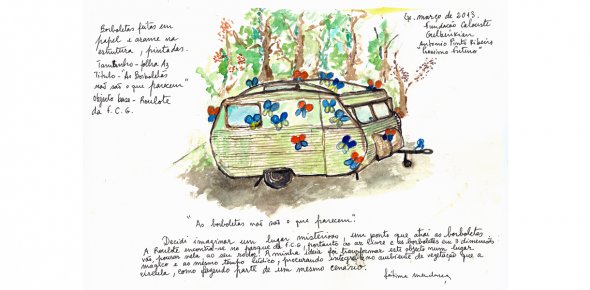 Borboletas feitas em
papel e arame na
estrutura, pintadas.
Tamanho - folha A3
Título - "As Borboletas
não são o que parecem"
Objecto base - Roulote
da F.C.G.
Ex. março de 2013.
Fundação Calouste
Gulbenkian
António Pinto Ribeiro
"Próximo Futuro"
"As borboletas não são o que parecem".
Decidi imaginar um lugar misterioso, um ponto que atrai as borboletas
A Roulote encontra-se no parque da F.C.G, portanto ao ar livre e as borboletas em 3 dimensões
vão, pousar nela ao seu redor. A minha ideia foi transformar este objecto num lugar
mágico e ao mesmo tempo lúdico, procurando integrá-lo no ambiente de vegetação que a
circula, como fazendo parte de um mesmo cenário.
Fátima Mendonça